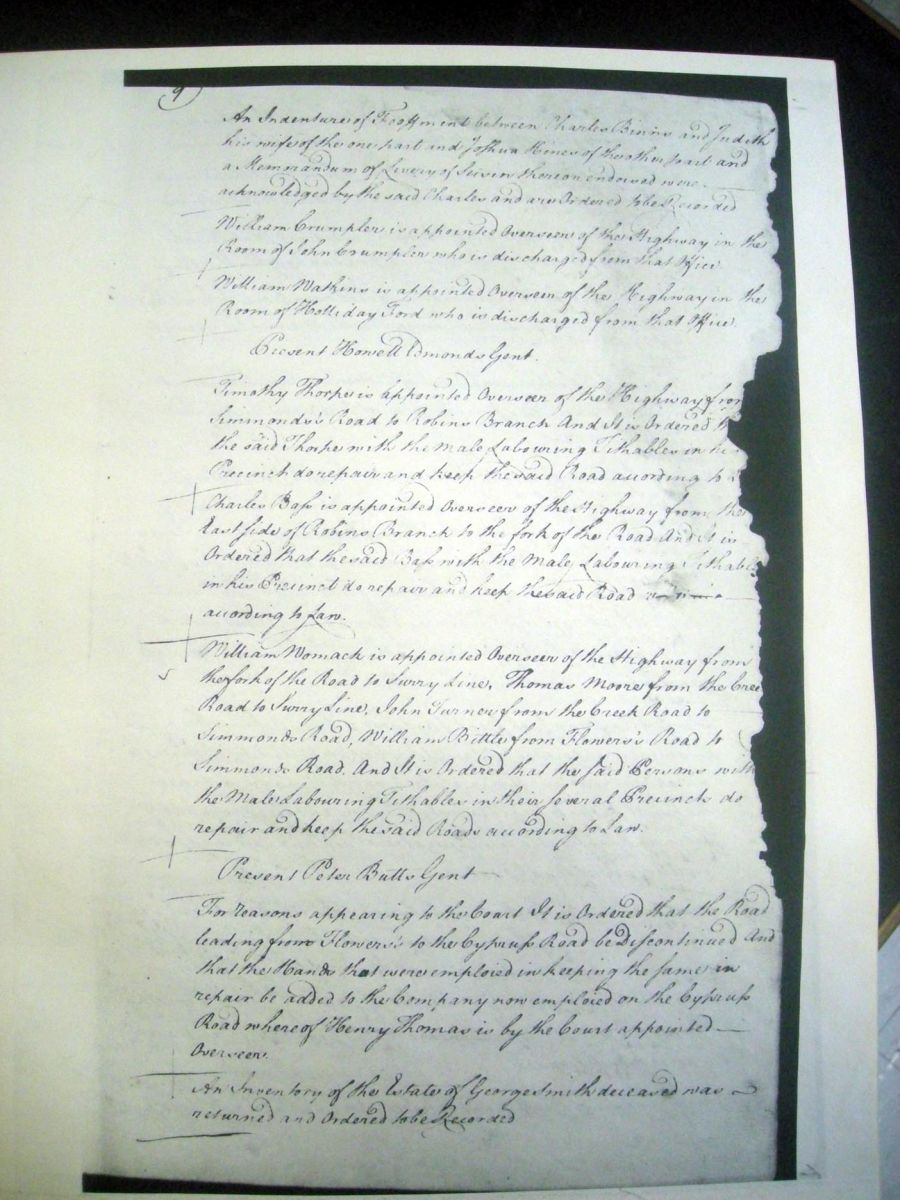 9
An Indenture of Feoffment between Charles Binns and Judith
his wife of the one part and Joshua Hines of the other part and
a Memorandum of Livery of Seisin thereon endorsed were
acknowledged by the said Charles and are Ordered to be Recorded
William Crumpler is appointed Overseer of the Highway in the
Room of John Crumpler who is discharged from that Office
William Watkins is appointed Overseer of the Highway in the
Room of Holliday Ford who is discharged from that Office.
Present Howell Edmonds Gent.
Timothy Thorpe is appointed Overseer of the Highway from
Simmonds's Road to Robins Branch And It is Ordered
the said Thorpe with the Male Labouring Tithables in his
Precinct do repair and keep the said Road according to
Charles Bass is appointed Overseer of the Highway from the
East side of Robins Branch to the fork of the Road And It is
Ordered that the said Bass with the Male Labouring Tithables
in his Precinct do repair and keep the said Road
according to Law.
William Womack is appointed Overseer of the Highway from
the fork of the Road to Surry Line, Thomas Moore from the Cree
Road to Surry Line, John Turner from the Creek Road to
Simmonds Road, William Bittle from Flowers's Road to
Simmonds Road. And It is Ordered that the said Persons with
the Male Labouring Tithables in their several Precincts do
repair and keep the said Roads according to Law.
Present Peter Butts Gent
For reasons appearing to the Court It is Ordered that the Road
leading from Flowers's to the Cypruss Road be Discontinued And
that the Hands that were emploied in keeping the same in
repair be added to the Company now emploied on the Cypruss
Road whereof Henry Thomas is by the Court appointed
Overseer.
An Inventory of the Estate of George Smith deceased was
returned and Ordered to be Recorded